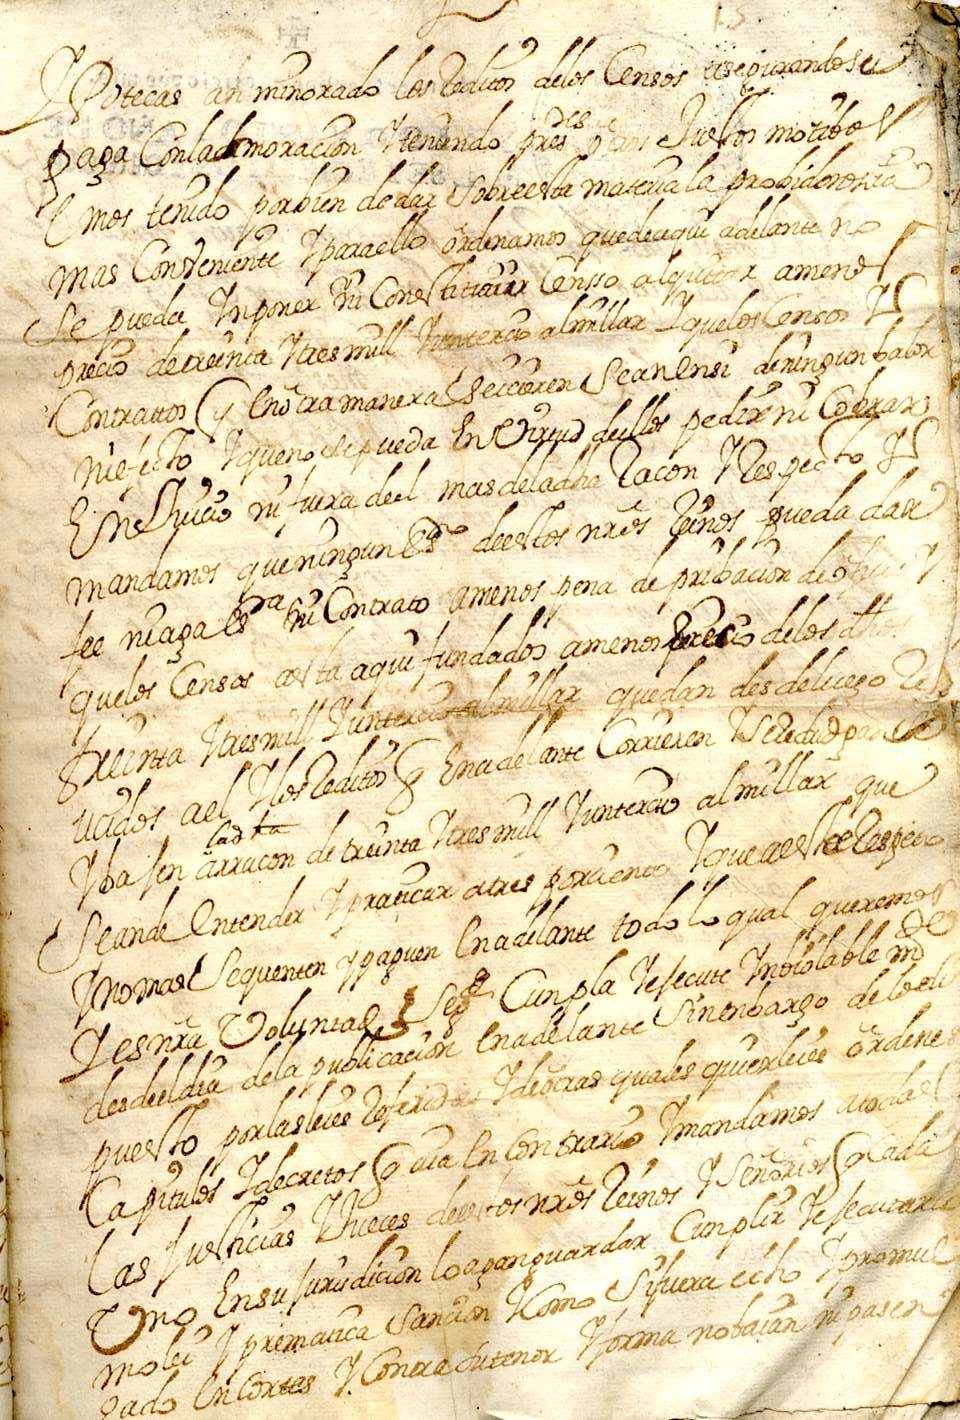 Ypotecas an minorado los reditos delos Censos asegurandose
paga Conla moracion Y teniendo pres.es otros Justos motibos
Emos tenido porbien de dar sobre esta materia la probidencia
mas Conveniente Y para ello ordenamos que de aqui adelante no
se pueda Ynponer ni Constituir Censso alquitar amenos
precio de treinta Ytres mill Yuntercio almillar Y quelos Censos Y
Contrattos q en otra manera se icieren sean Ensi deningun balor
ni efecto Y que no se pueda En Virtud dellos pedir ni Cobrar
En Juicio ni fuera del mas dela dha Racon Y Respecto Y
mandamos que ningun es.no de estos nros Reinos pueda dar
fee ni aga es.ra ni Contrato amenos pena de pribacion de ofi
quelos Censos asta aqui fundados amenos precio delos dhos
treinta Ytres mill Yuntercio almillar quedan desde luego Red
ucidos ael Ylos Reditos q En adelante Corrieren
Y ba sen a la dha rracon de treinta Ytres mill Yuntercio almillar que
se ande Entender Y praticar atres porciento Y que a este Respecto
Y no mas se quenten Y paguen En adelante todo lo qual queremos
Y es nra Voluntad se g.e Cunpla Y esecute Ynbiolable m.te
desde eldia dela publicacion En adelante sin enbargo delo dis
puesto por las leies Referidas Y de otras quales quier leies ordenes
Capitulos Y decretos q aia En Contrario Y mandamos atodas
las Justicias Y Jueces de estos nros Reinos Y señorios q Cada
Uno En su Jurisdicion lo agan guardar Cunplir Y esecutar Co
mo lei Y prematica sancion Y Como si fuera echo Y promul
gado En Cortes Y Contra su tenor Y forma no baian ni pasen